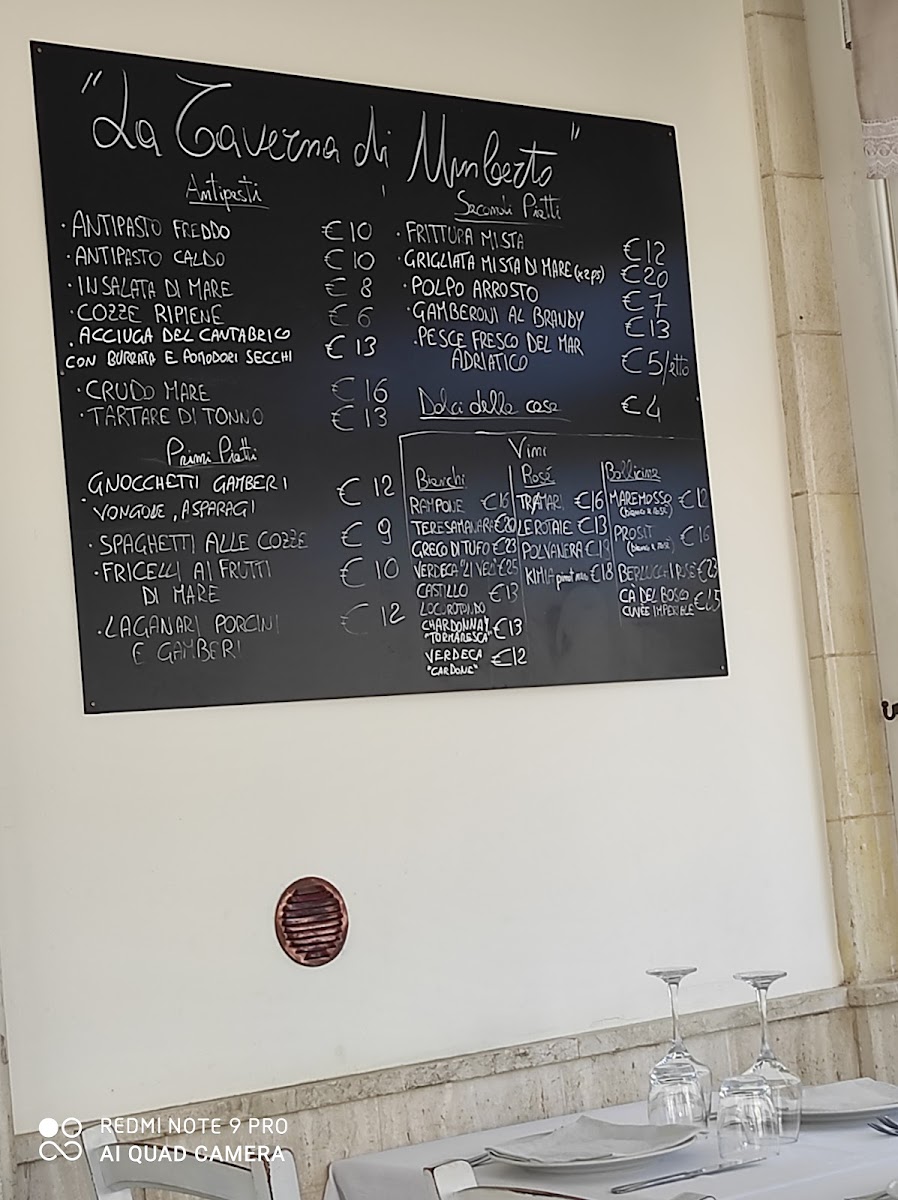 "La Taverna di Umberto"
Antipasti
· ANTIPASTO FREDDO €10
· ANTIPASTO CALDO €10
· INSALATA DI MARE €8
· COZZE RIPIENE €6
· ACCIUGA DEL CANTABRICO
CON BURRATA E POMODORI SECCHI €13
· CRUDO MARE €16
· TARTARE DI TONNO €13
Primi Piatti
· GNOCCHETTI GAMBERI
VONGOLE, ASPARAGI €12
· SPAGHETTI ALLE COZZE €9
· FRICELLI AI FRUTTI
DI MARE €10
· LAGANARI PORCINI
E GAMBERI €12
Secondi Piatti
· FRITTURA MISTA €12
· GRIGLIATA MISTA DI MARE (x2ps) €20
· POLPO ARROSTO €7
· GAMBERONI AL BRANDY €13
· PESCE FRESCO DEL MAR
ADRIATICO €5/etto
Dolci della casa €4
Vini
Bianchi
RAMPONE €16
TERESAMANARA €20
GRECO DI TUFO €23
VERDECA "LI VELI" €25
CASTILLO €13
LOCOROTONDO
CHARDONNAY €13
"TORMARESCA"
VERDECA €12
"CARDONE"
Rosé
TRAMARI €16
LE ROTAIE €13
POLVANERA
KIMIA pinot nero €18
Bollicine
MAREMOSSO €12
(bianco e rosé)
PROSIT €16
(bianco e rosé)
BERLUCCHI ROSÈ €23
CÀ DEL BOSCO
CUVÈE IMPERIALE
REDMI NOTE 9 PRO
AI QUAD CAMERA